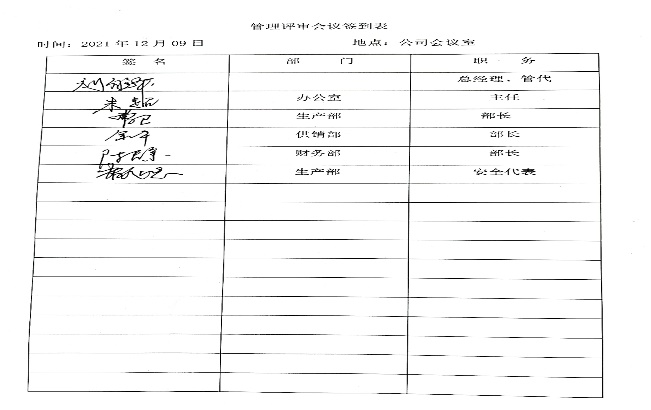 管理评审会议签到表
时间：2021年12月09日 地点：公司会议室
签 名 部 门 职 务
总经理、管代
办公室 主任
生产部 部长
供销部 部长
财务部 部长
生产部 安全代表